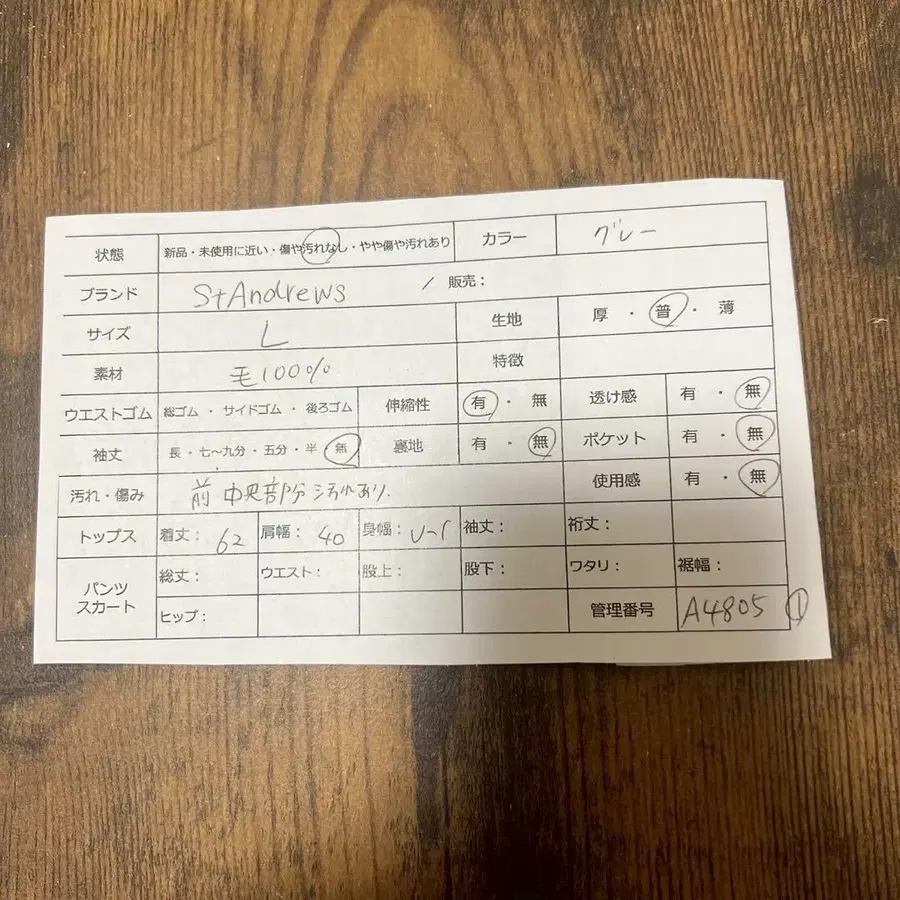 状態 新品・未使用に近い・傷や汚れなし・やや傷や汚れあり カラー グレー
ブランド StAndrews / 販売：
サイズ L 生地 厚 ・ 普 ・ 薄
素材 毛100% 特徴
ウエストゴム 総ゴム ・ サイドゴム ・ 後ろゴム 伸縮性 有 ・ 無 透け感 有 ・ 無
袖丈 長・七～九分・五分・半・無 裏地 有 ・ 無 ポケット 有 ・ 無
汚れ・傷み 前 中央部分 汚れあり. 使用感 有 ・ 無
トップス 着丈： 62 肩幅： 40 身幅： 袖丈： 裄丈：
パンツ スカート 総丈： ウエスト： 股上： 股下： ワタリ： 裾幅：
ヒップ： 管理番号 A4805 ①